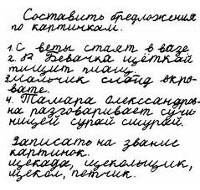 Составить предложения
по картинкам.
1. С веты стаят в вазе
2. Девачка щёткай
пишит
3. мальчик слaид окро-
вате.
4. Тамара олександро-
на разговаривает сучи-
нищей сурай шурай.
Записато на звание
картинок.
щекада, щекольщик,
щекол, петчик.